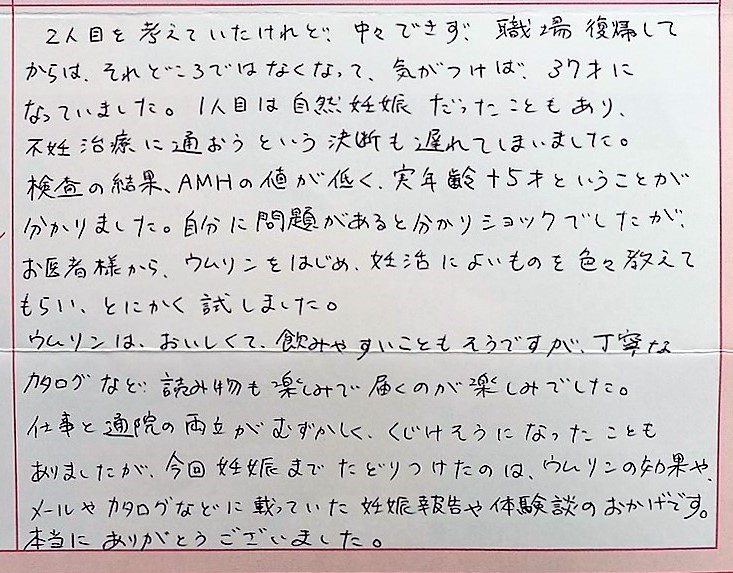 2人目を考えていたけれど、中々できず、職場復帰して
からは、それどころではなくなって、気がつけば、37才に
なっていました。1人目は自然妊娠だったこともあり、
不妊治療に通おうという決断も遅れてしまいました。
検査の結果、AMHの値が低く、実年齢+5才ということが
分かりました。自分に問題があると分かりショックでしたが、
お医者様から、ウムリンをはじめ、妊活によいものを色々教えて
もらい、とにかく試しました。
ウムリンは、おいしくて、飲みやすいこともそうですが、丁寧な
カタログなど読み物も楽しみで届くのが楽しみでした。
仕事と通院の両立がむずかしく、くじけそうになったことも
ありましたが、今回妊娠までたどりつけたのは、ウムリンの効果や、
メールやカタログなどに載っていた妊娠報告や体験談のおかげです。
本当にありがとうございました。